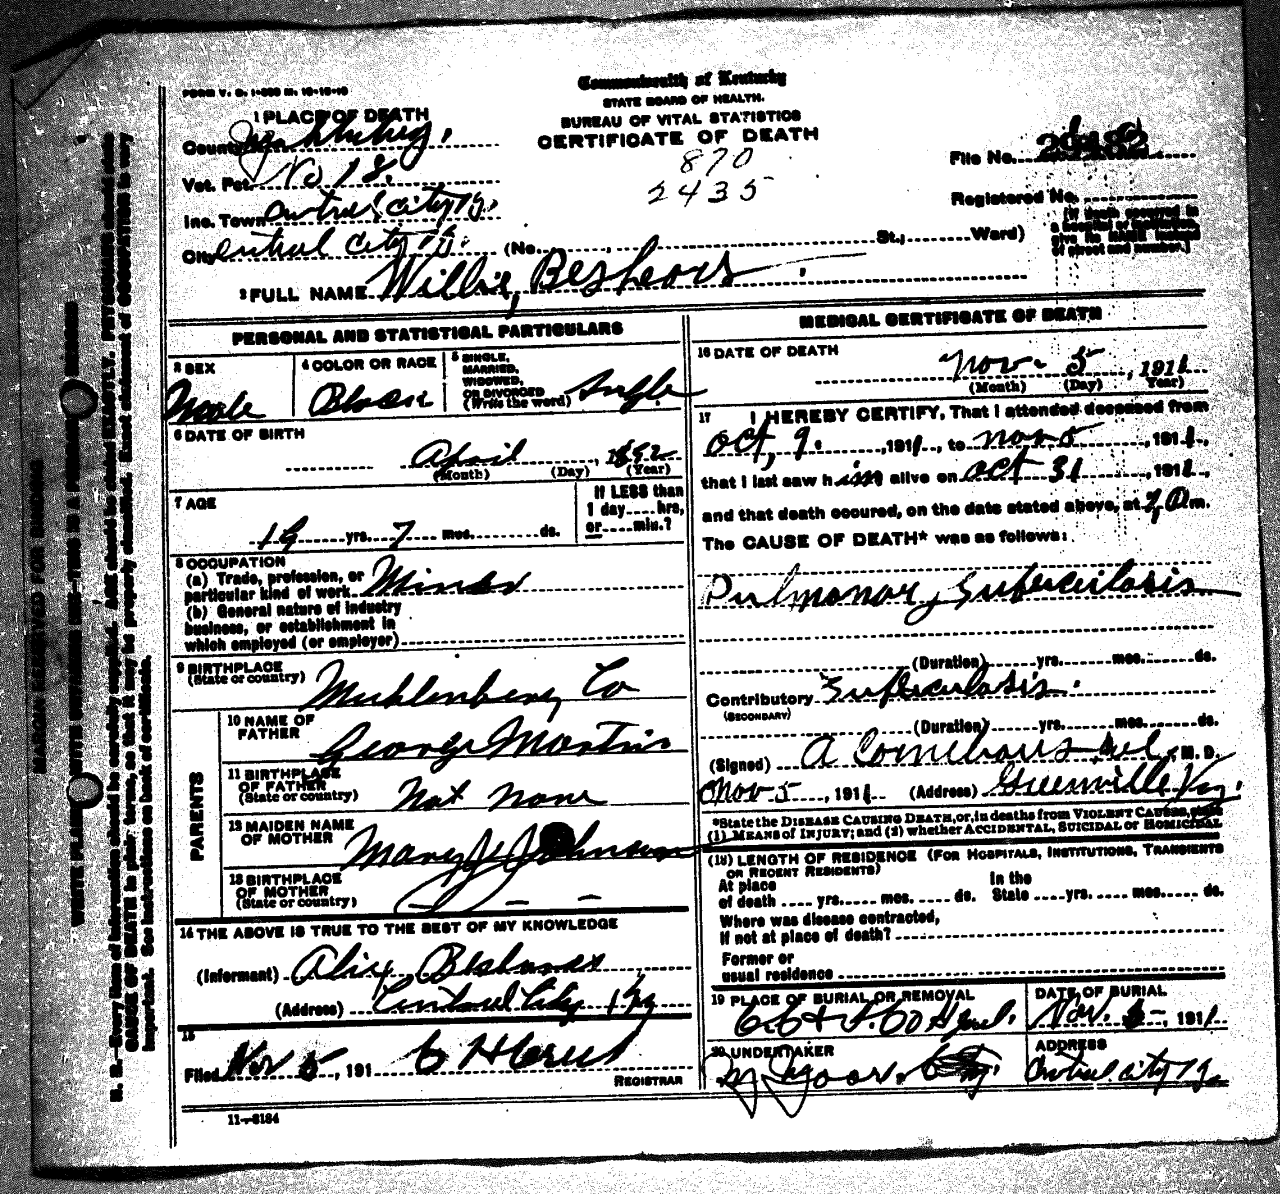 FORM V. S. 1-
Commonwealth of Kentucky
STATE BOARD OF HEALTH.
BUREAU OF VITAL STATISTICS
CERTIFICATE OF DEATH
1 PLACE OF DEATH
County
Vot. Pct. No 18.
Inc. Town Central City Ky.
City Central City Ky. (No. St., Ward)
870
2435
File No.
Registered No.
[If death occurred in
a hospital or
give its NAME instead
of street and number.]
2 FULL NAME Willie, Beshears
PERSONAL AND STATISTICAL PARTICULARS
3 SEX
Male
4 COLOR OR RACE
5 SINGLE,
MARRIED,
WIDOWED,
OR DIVORCED
(Write the word) Single
6 DATE OF BIRTH
April , 1892
(Month) (Day) (Year)
7 AGE
19 yrs. 7 mos. ds.
If LESS than
1 day hrs,
or min.?
8 OCCUPATION
(a) Trade, profession, or
particular kind of work
(b) General nature of industry
business, or establishment in
which employed (or employer)
9 BIRTHPLACE
(State or country) Muhlenberg Co
PARENTS
10 NAME OF
FATHER George Martin
11 BIRTHPLACE
OF FATHER
(State or country) Not
12 MAIDEN NAME
OF MOTHER Mary J Johnson
13 BIRTHPLACE
OF MOTHER
(State or country)
14 THE ABOVE IS TRUE TO THE BEST OF MY KNOWLEDGE
(Informant)
(Address) Central City Ky
15
Filed Nov 5, 191
REGISTRAR
11-3184
MEDICAL CERTIFICATE OF DEATH
16 DATE OF DEATH
Nov - 5 , 1911
(Month) (Day) Year)
17 I HEREBY CERTIFY, That I attended deceased from
Oct, 9. , 1911, to Nov 5 , 1911,
that I last saw him alive on Oct 31 , 1911,
and that death occured, on the date stated above, at m.
The CAUSE OF DEATH* was as follows:
Pulmonary Tuberculosis
(Duration) yrs. mos. ds.
Contributory Tuberculosis.
(SECONDARY)
(Duration) yrs. mos. ds.
(Signed) , M. D.
Nov 5 , 1911 (Address) Greenville Ky.
*State the DISEASE CAUSING DEATH, or, in deaths from VIOLENT CAUSES, state
(1) MEANS of INJURY; and (2) whether ACCIDENTAL, SUICIDAL or HOMICIDAL
(18) LENGTH OF RESIDENCE (FOR HOSPITALS, INSTITUTIONS, TRANSIENTS
OR RECENT RESIDENTS)
At place
of death yrs. mos. ds.
In the
State yrs. mos. ds.
Where was disease contracted,
If not at place of death?
Former or
usual residence
19 PLACE OF BURIAL OR REMOVAL
DATE OF BURIAL
Nov. , 1911
20 UNDERTAKER
ADDRESS
Central City Ky
MARGIN RESERVED FOR BINDING
WRITE PLAINLY WITH UNFADING INK—THIS IS A PERMANENT RECORD
N. B.—Every item of information should be carefully supplied. AGE should be stated EXACTLY. PHYSICIANS should state
CAUSE OF DEATH in plain terms, so that it may be properly classified. Exact statement of OCCUPATION is very
important. See instructions on back of certificate.